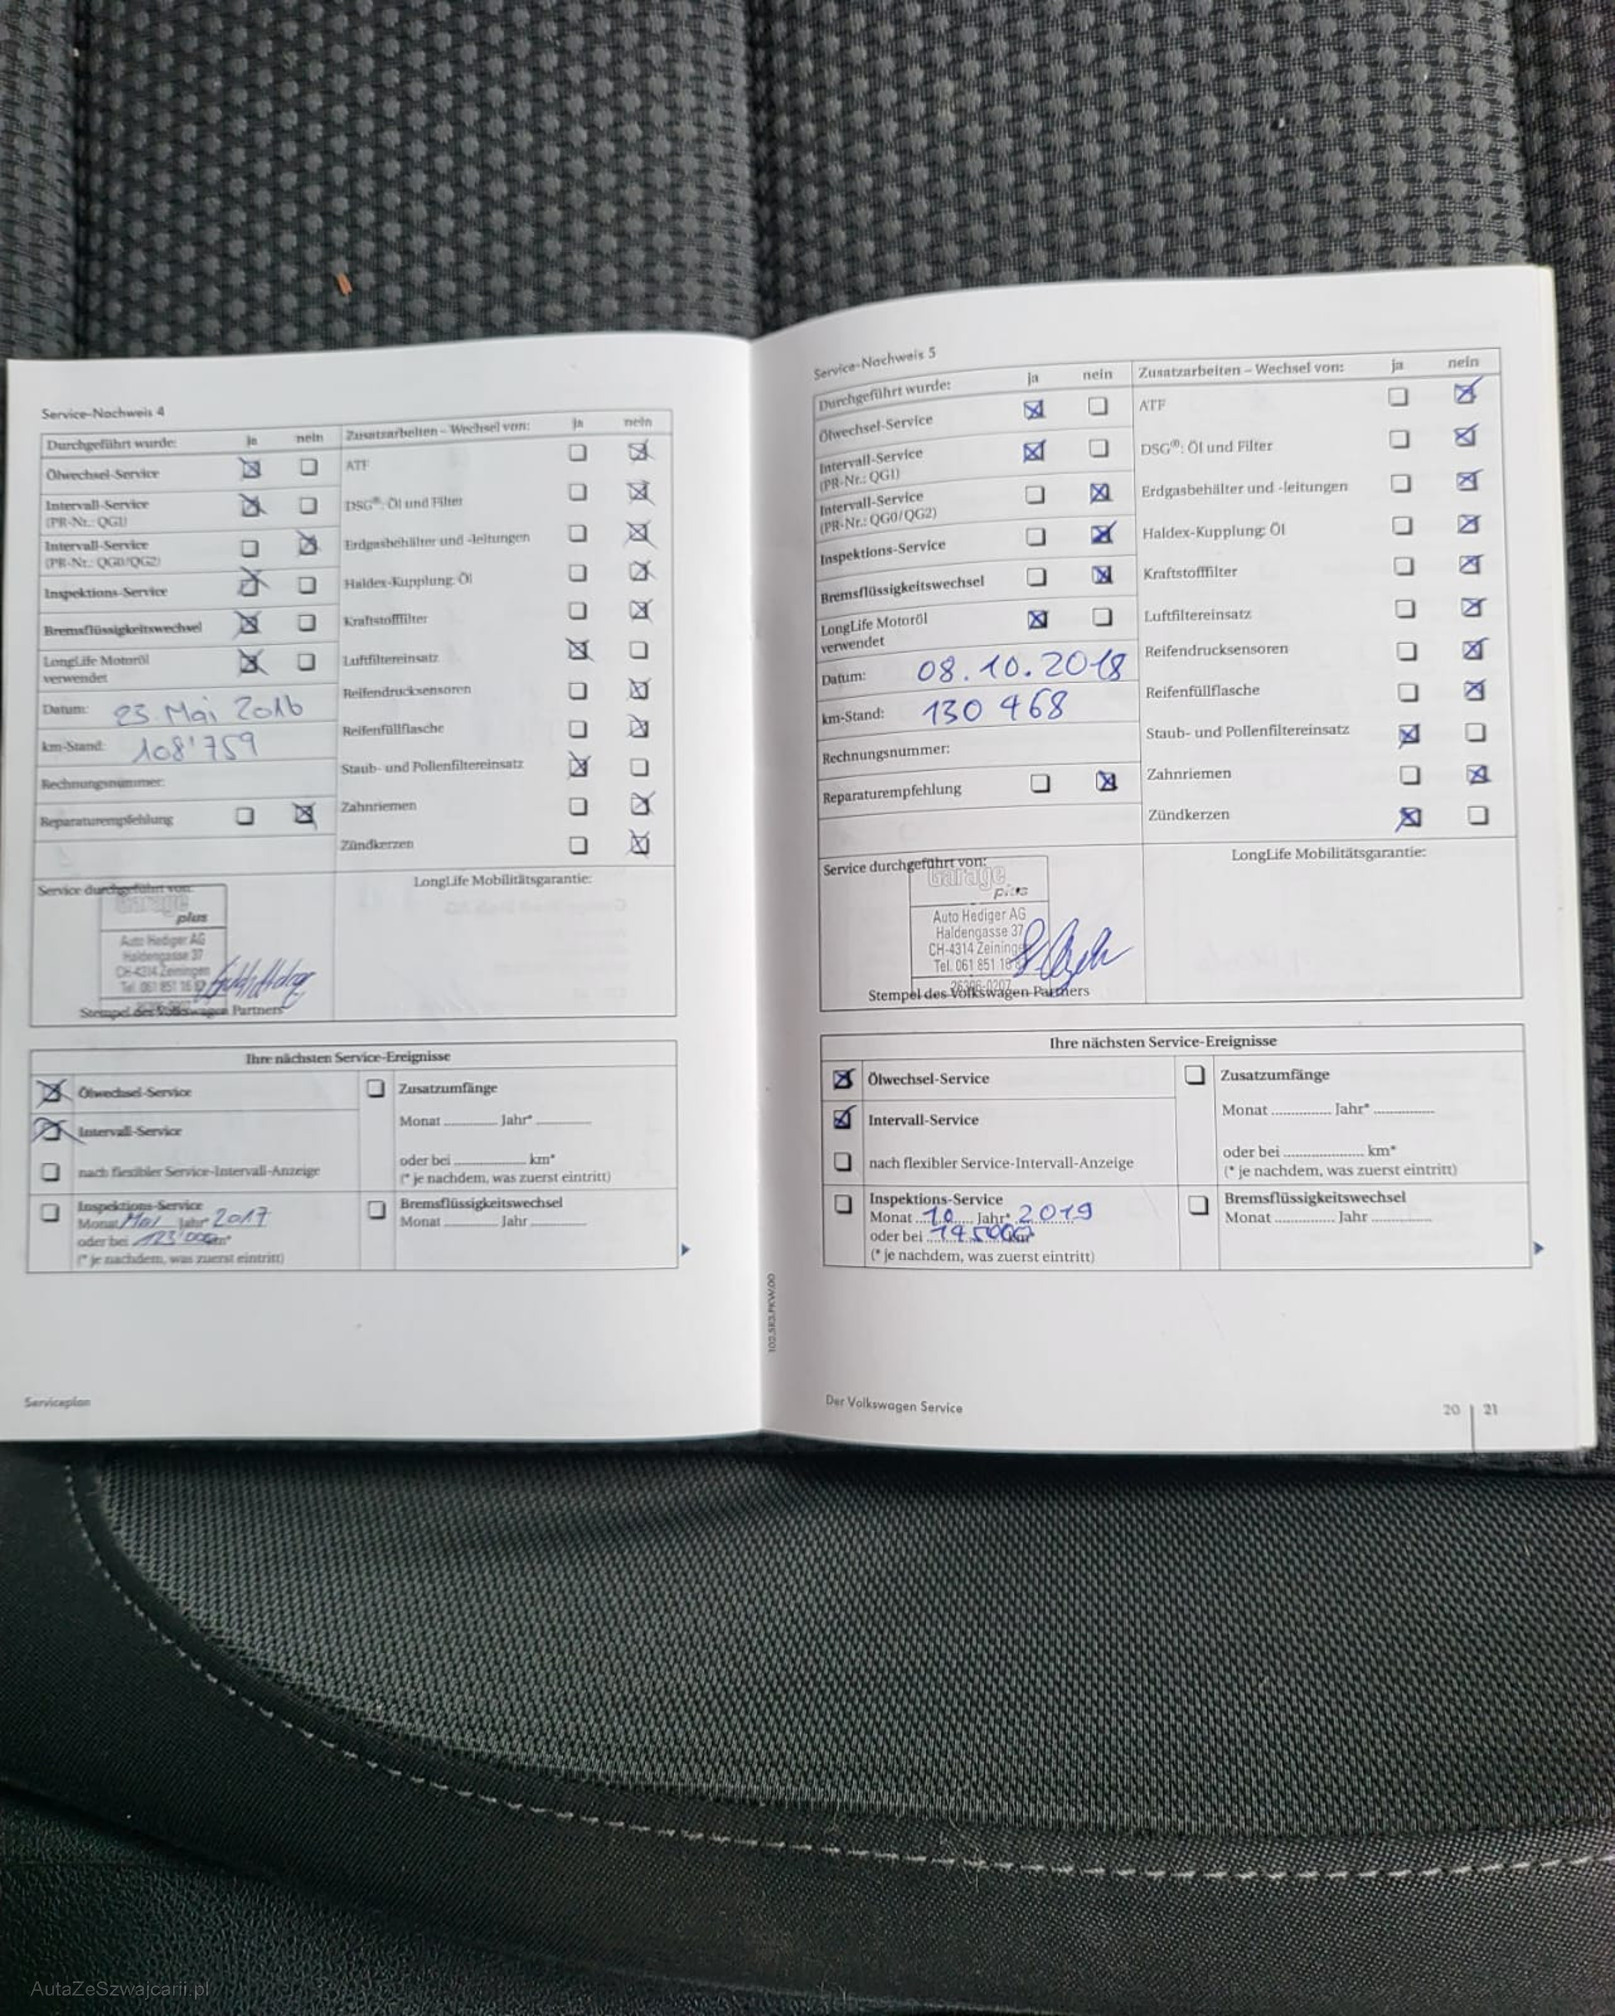 Service-Nachweis 4
Durchgeführt wurde: ja nein
Ölwechsel-Service
Intervall-Service
(PR-Nr.: QG1)
Intervall-Service
(PR-Nr.: QG0/QG2)
Inspektions-Service
Bremsflüssigkeitswechsel
LongLife Motoröl
verwendet
Datum: 23. Mai 2016
km-Stand: 108'759
Rechnungsnummer:
Reparaturempfehlung
Zusatzarbeiten – Wechsel von: ja nein
ATF
DSG®: Öl und Filter
Erdgasbehälter und -leitungen
Haldex-Kupplung: Öl
Kraftstofffilter
Luftfiltereinsatz
Reifendrucksensoren
Reifenfüllflasche
Staub- und Pollenfiltereinsatz
Zahnriemen
Zündkerzen
Service durchgeführt von:
Garage
plus
Auto Hediger AG
Haldengasse 37
CH-4314 Zeiningen
Tel. 061 851 16
Stempel des Volkswagen Partners
LongLife Mobilitätsgarantie:
Ihre nächsten Service-Ereignisse
Ölwechsel-Service
Intervall-Service
nach flexibler Service-Intervall-Anzeige
Inspektions-Service
Monat Mai Jahr* 2017
oder bei 123'000 km*
(* je nachdem, was zuerst eintritt)
Zusatzumfänge
Monat ............ Jahr* ............
oder bei ................ km*
(* je nachdem, was zuerst eintritt)
Bremsflüssigkeitswechsel
Monat ............ Jahr ............
Serviceplan
102.5R3.PKW.00
Service-Nachweis 5
Durchgeführt wurde: ja nein
Ölwechsel-Service
Intervall-Service
(PR-Nr.: QG1)
Intervall-Service
(PR-Nr.: QG0/QG2)
Inspektions-Service
Bremsflüssigkeitswechsel
LongLife Motoröl
verwendet
Datum: 08.10.2018
km-Stand: 130 468
Rechnungsnummer:
Reparaturempfehlung
Zusatzarbeiten – Wechsel von: ja nein
ATF
DSG®: Öl und Filter
Erdgasbehälter und -leitungen
Haldex-Kupplung: Öl
Kraftstofffilter
Luftfiltereinsatz
Reifendrucksensoren
Reifenfüllflasche
Staub- und Pollenfiltereinsatz
Zahnriemen
Zündkerzen
Service durchgeführt von:
Garage
plus
Auto Hediger AG
Haldengasse 37
CH-4314 Zeininge
Tel. 061 851 16
26306-0207
Stempel des Volkswagen Partners
LongLife Mobilitätsgarantie:
Ihre nächsten Service-Ereignisse
Ölwechsel-Service
Intervall-Service
nach flexibler Service-Intervall-Anzeige
Inspektions-Service
Monat 10 Jahr* 2019
oder bei 145000 km*
(* je nachdem, was zuerst eintritt)
Zusatzumfänge
Monat ............ Jahr* ............
oder bei ................ km*
(* je nachdem, was zuerst eintritt)
Bremsflüssigkeitswechsel
Monat ............ Jahr ............
Der Volkswagen Service
20 | 21
AutaZeSzwajcarii.pl